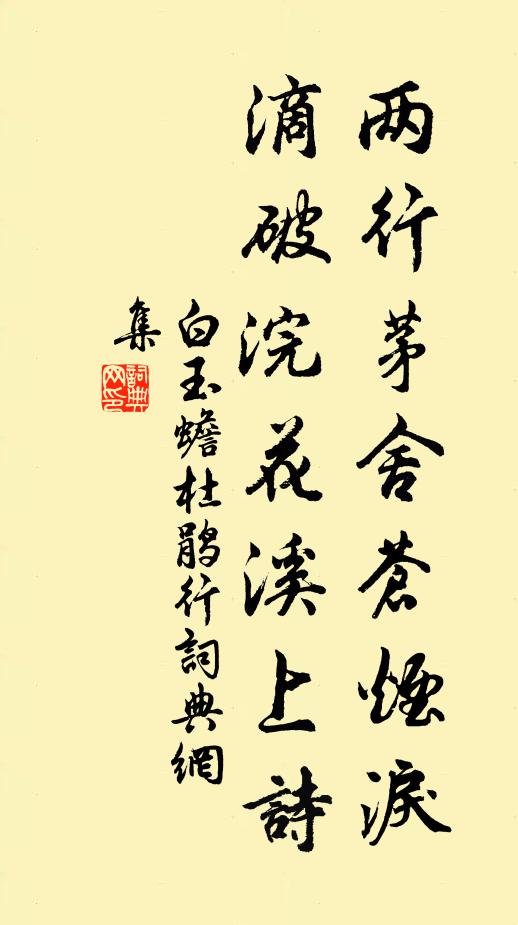 两行茅舍蒼煙淚
滴破浣花溪上詩
白玉蟾杜鹃行詞典網
集
詞典网印